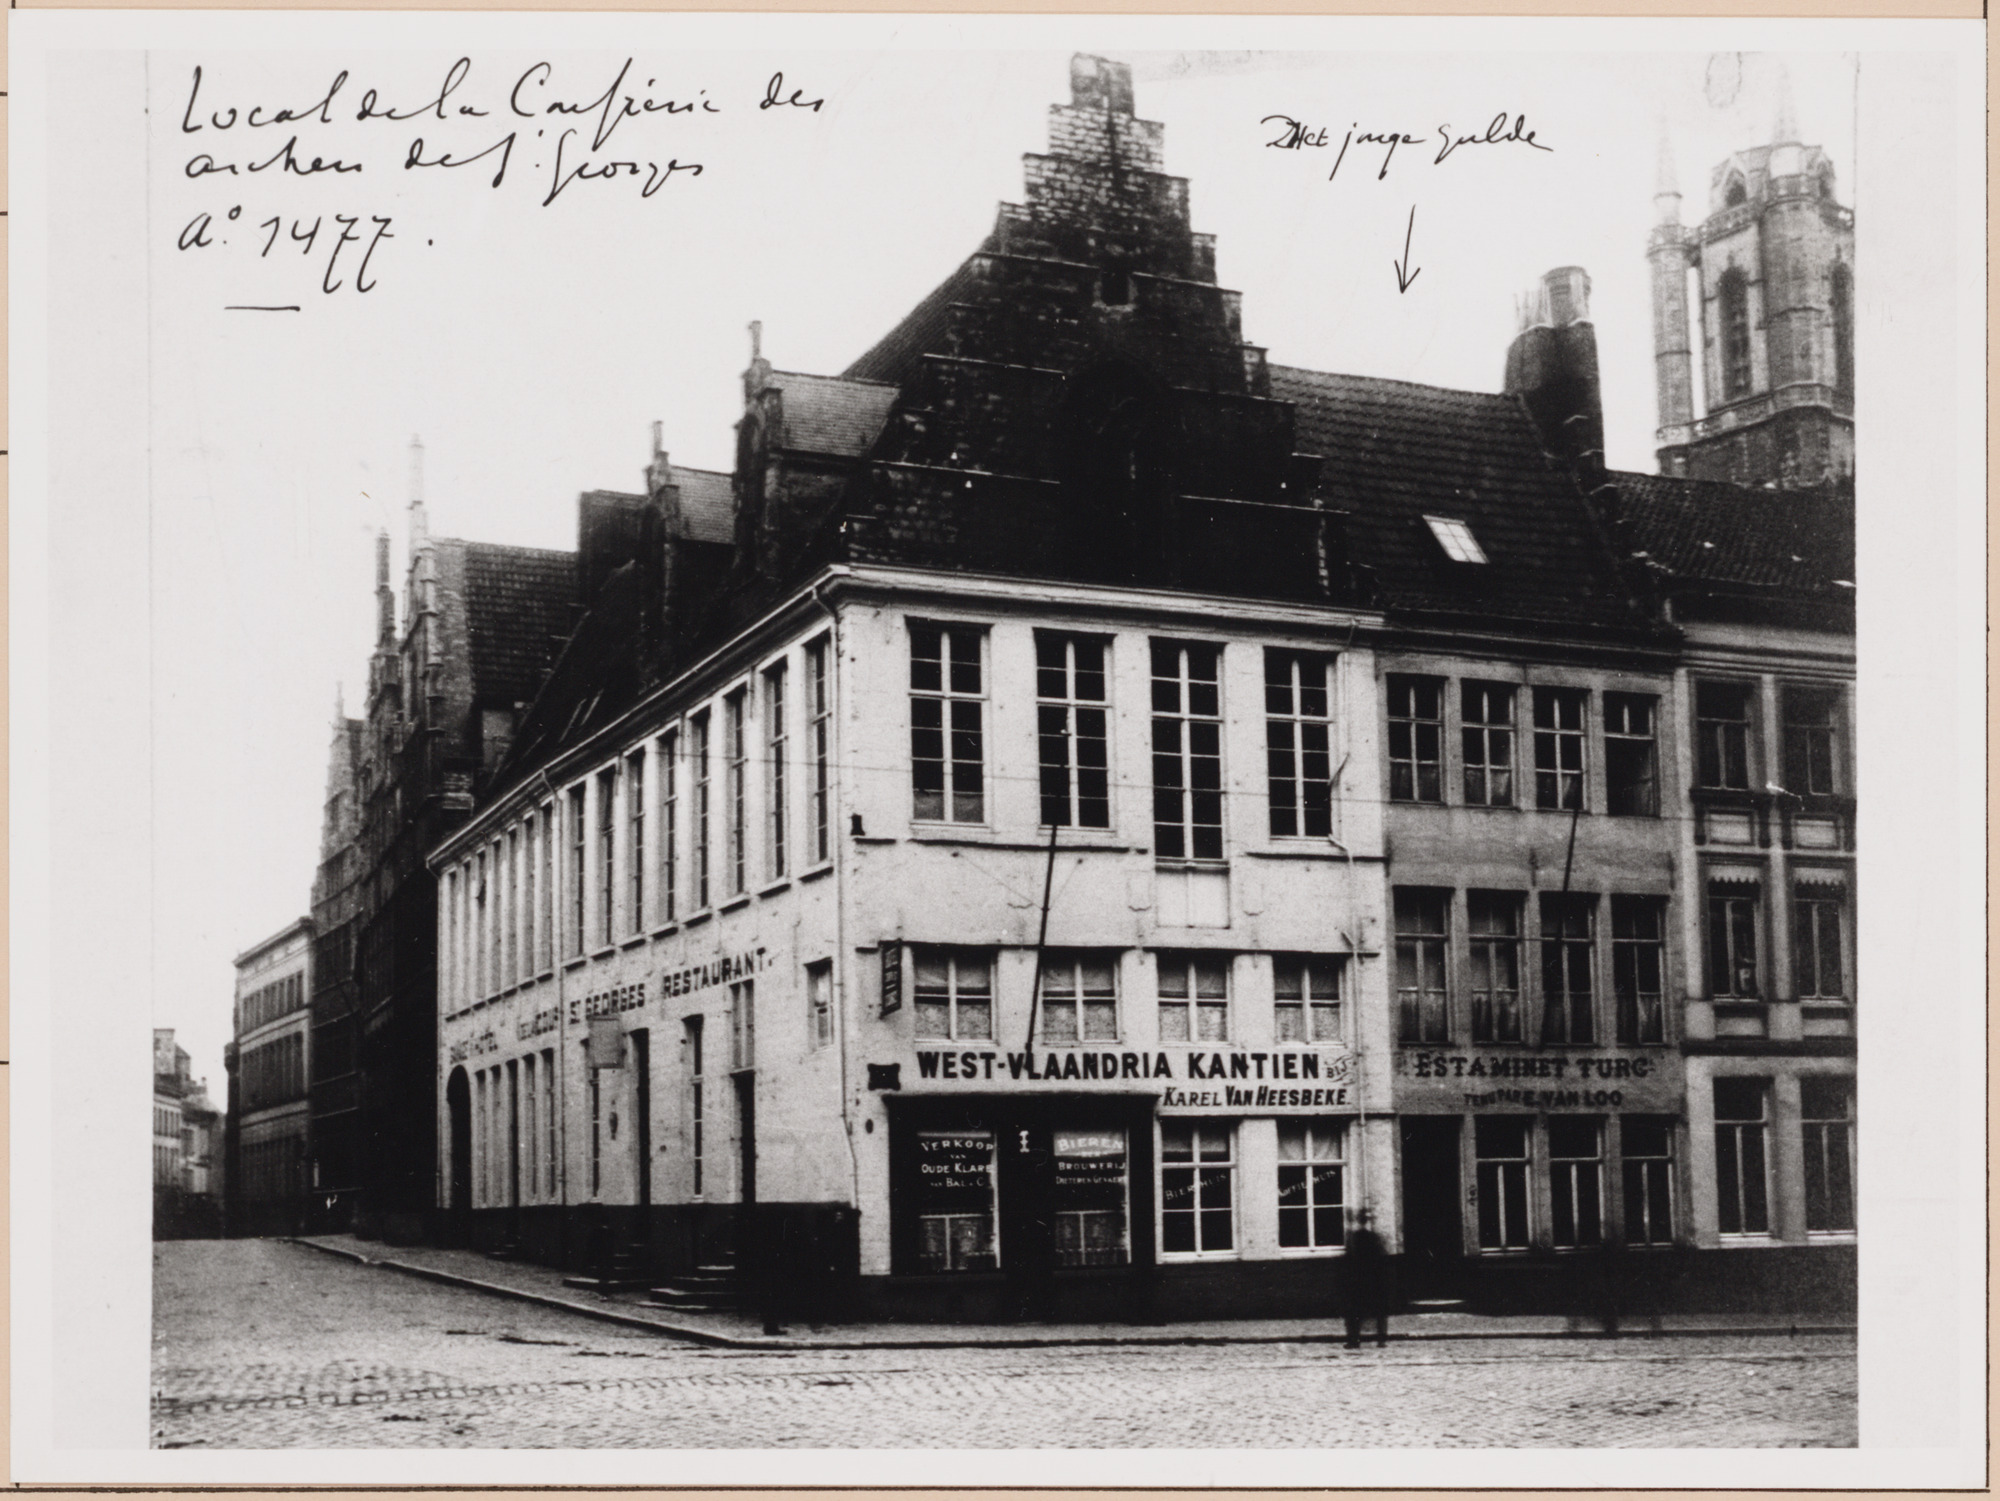 Local de la Confrérie des
archers de St. Georges
A° 1477.
Het jonge Gulde
HOTEL DE LA COUR ST GEORGES RESTAURANT.
WEST-VLAANDRIA KANTIEN BIJ
KAREL VAN HEESBEKE.
VERKOOP
VAN
OUDE KLARE
VAN BAL & C
BIEREN
DER
BROUWERIJ
BIERHUIS
ESTAMINET TURC
TENU PAR E. VAN LOO